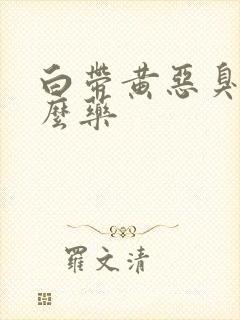 白帶黃惡臭
麼藥
羅文清